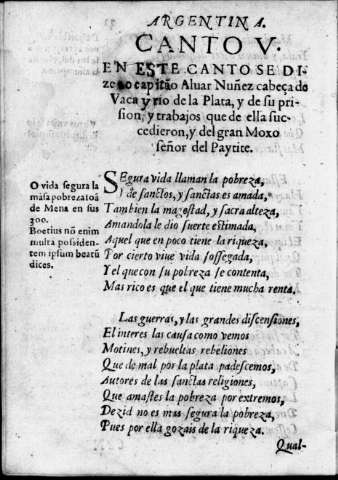 ARGENTINA.
CANTO V.
EN ESTE CANTO SE DI-
ze capitão Aluar Nuñez cabeça de
Vaca y rio de la Plata, y de su pri
sion, y trabajos que de ella suc-
cedieron, y del gran Moxo
señor del Paytite.
O vida segura la
māsa pobreza Ioā
de Mena en sus
300.
Boetius nō enim
multa possiden-
tem ipsum beatū
dices.
SEgura vida llaman la pobreza,
y de sanctos, y sanctas es amada,
Tambien la magestad, y sacra alteza,
Amandola le dio suerte estimada,
Aquel que en poco tiene la riqueza,
Por cierto viue vida sossegada,
Y el que con su pobreza se contenta,
Mas rico es que el que tiene mucha renta.
Las guerras, y las grandes discensiones,
El interes las causa como vemos
Motines, y rebueltas rebeliones
Que de mal por la plata padescemos,
Autores de las sanctas religiones,
Que amastes la pobreza por extremos,
Dezid no es mas segura la pobreza,
Pues por ella gozais de la riqueza.
Qual-